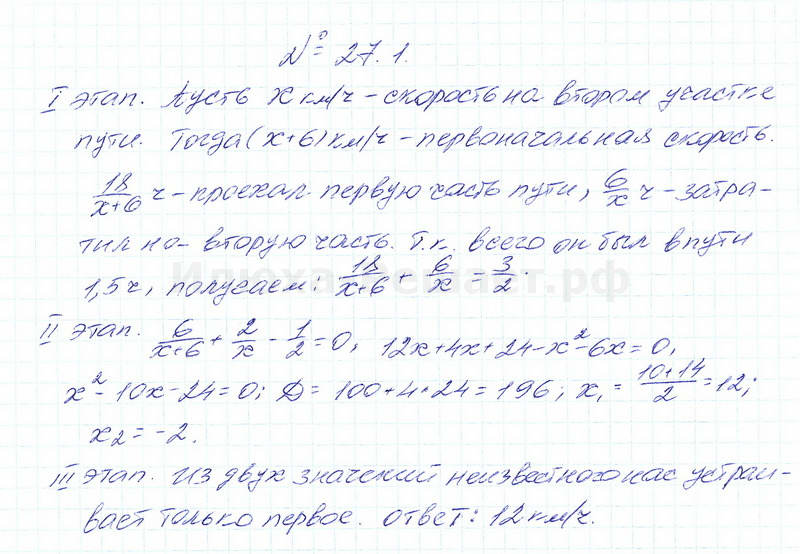 № 27.1.
I этап. Пусть x км/ч – скорость на втором участке
пути. Тогда (x+6) км/ч – первоначальная скорость.
18/(x+6) ч – проехал первую часть пути, 6/x ч – затра-
тил на – вторую часть. Т.к. всего он был в пути
1,5 ч, получаем: 18/(x+6) + 6/x = 3/2.
II этап. 6/(x+6) + 2/x - 1/2 = 0, 12x+4x+24-x²-6x=0,
x²-10x-24=0; D=100+4+24=196; x₁=(10+14)/2=12;
x₂=-2.
III этап. Из двух значений неизвестного нас устраи-
вает только первое. Ответ: 12 км/ч.
Илюха Решает.рф